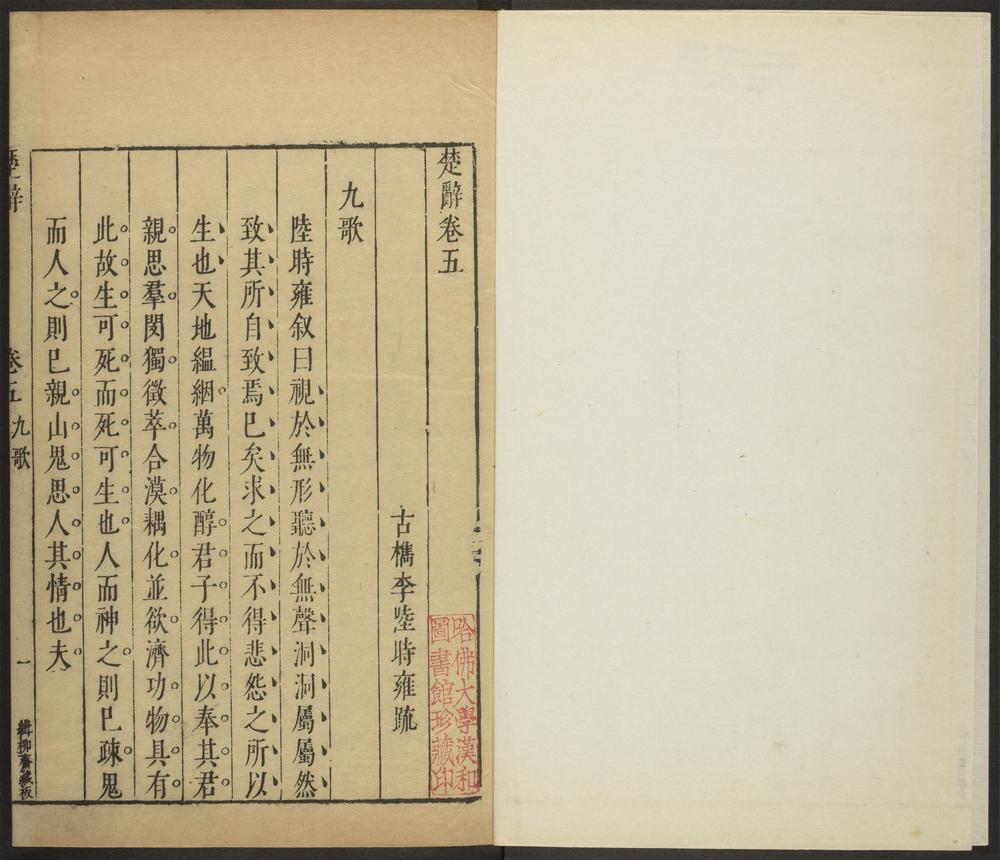 楚辭卷五
古檇李陸時雍疏
九歌
陸時雍叙曰視於無形聽於無聲洞洞屬屬然
致其所自致焉巳矣求之而不得悲怨之所以
生也天地縕絪萬物化醇君子得此以奉其君
親思羣閔獨徵萃合漠耦化並欲濟功物具有
此故生可死而死可生也人而神之則巳疎鬼
而人之則巳親山鬼思人其情也夫
楚辭
卷五 九歌
一
緝柳齋藏板
哈佛大學漢和
圖書館珍藏印